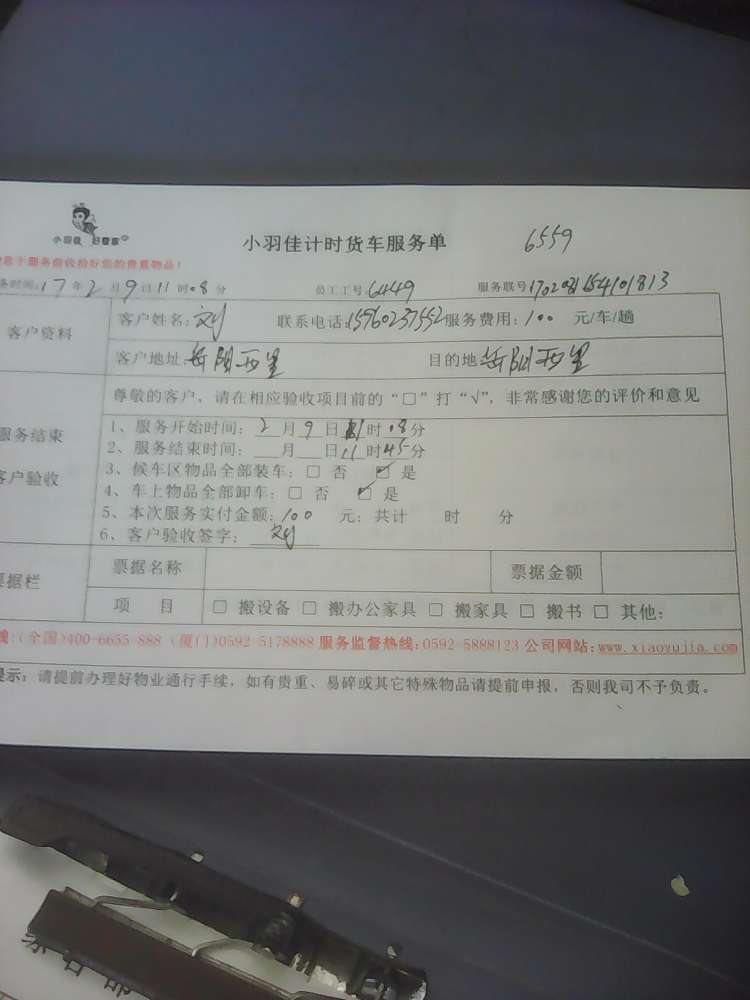 小羽佳 好管家
小羽佳计时货车服务单 6559
于服务前收拾好您的贵重物品!
务时间:17年2月9日11时08分 员工工号:6449 服务联号
客户资料 客户姓名:刘 联系电话:15960237552 服务费用:100 元/车/趟
客户地址:岳阳西里 目的地:岳阳西里
尊敬的客户,请在相应验收项目前的“□”打“√”,非常感谢您的评价和意见
服务结束
客户验收
1、服务开始时间: 2月9日11时08分
2、服务结束时间: 月 日11时45分
3、候车区物品全部装车:□ 否 ☑ 是
4、车上物品全部卸车:□ 否 ☑ 是
5、本次服务实付金额:100 元;共计 时 分
6、客户验收签字: 刘
票据栏 票据名称 票据金额
项 目 □ 搬设备 □ 搬办公家具 □ 搬家具 □ 搬书 □ 其他:
线:(全国)400-6655-888 (厦门)0592-5178888 服务监督热线:0592-5888123 公司网站:www.xiaoyujia.com
提示:请提前办理好物业通行手续,如有贵重、易碎或其它特殊物品请提前申报,否则我司不予负责。